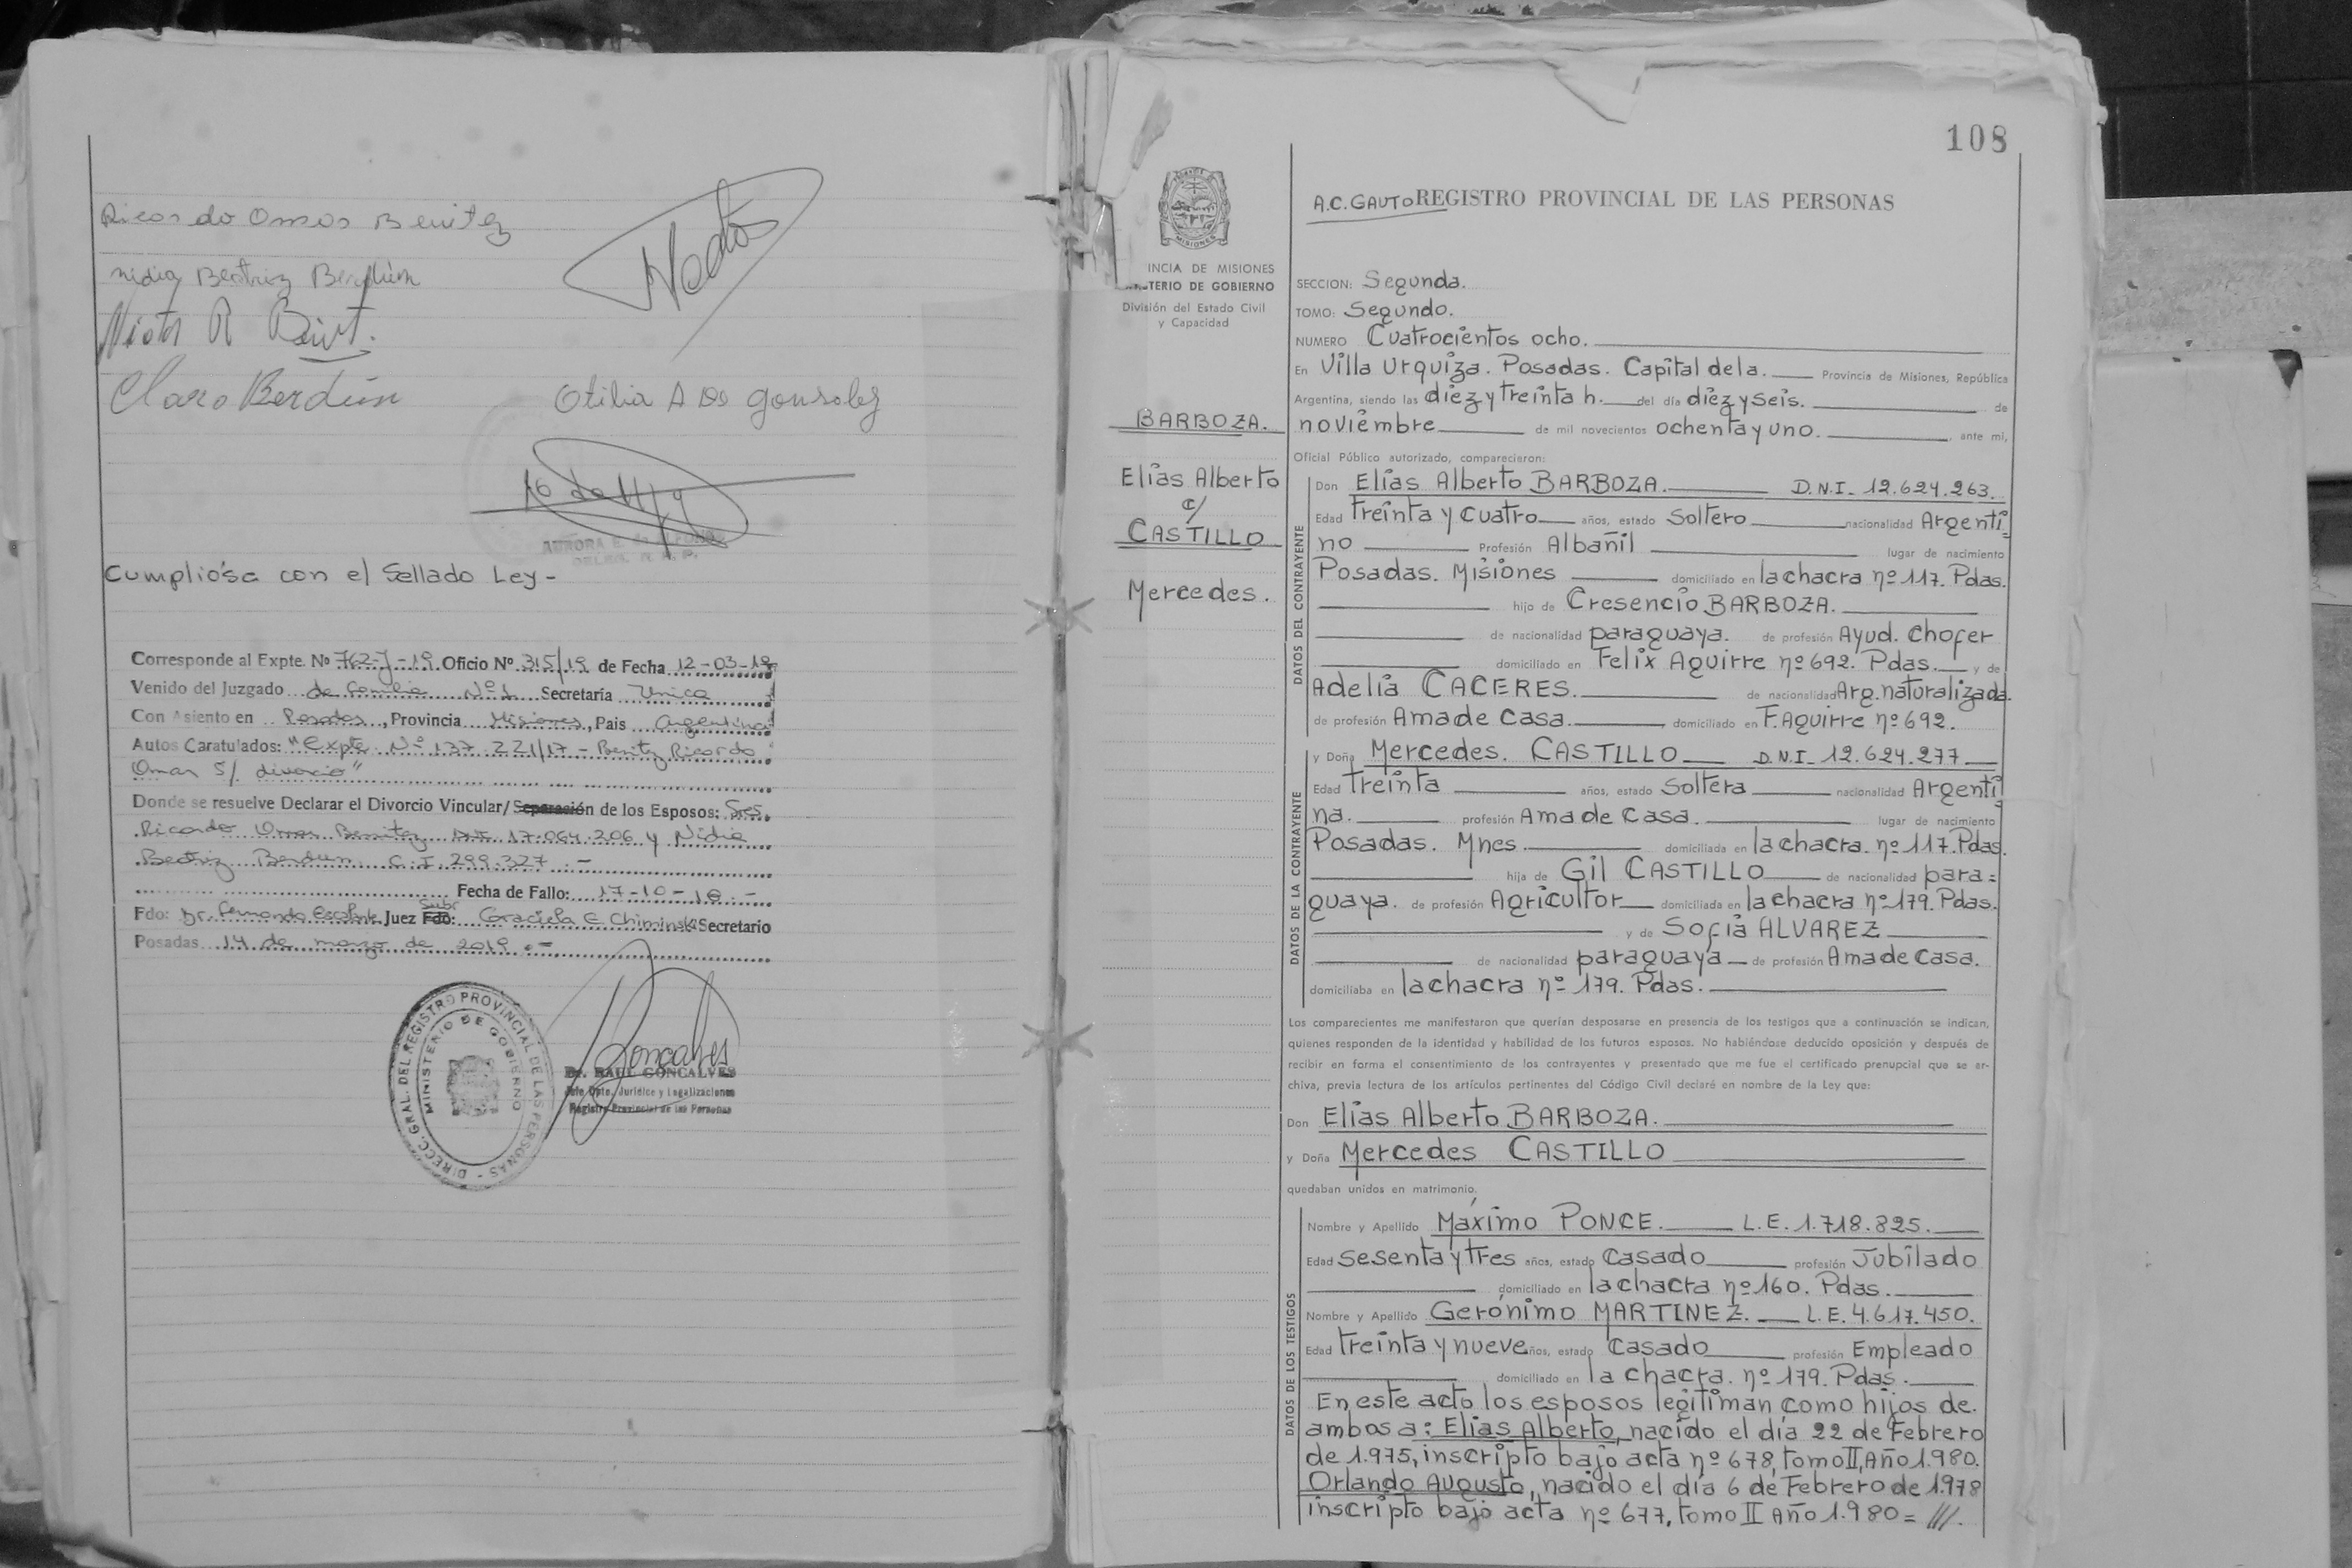 Ricardo Omar Benitez
Nidia Beatriz Berdún
Clara Berdún
Otilia A De Gonsalez
AURORA E. de ALFONSO
DELEG. R. P. P.
Cumpliósa con el Sellado Ley -
Corresponde al Expte. Nº 762-J-19 Oficio Nº 315/19 de Fecha 12-03-19
Venido del Juzgado de Familia Nº 1 Secretaría Unica
Con Asiento en Posadas, Provincia Misiones, Pais Argentina
Autos Caratulados: "Expte. Nº 137.221/17 - Benitez Ricardo
Omar S/ divorcio"
Donde se resuelve Declarar el Divorcio Vincular/Separación de los Esposos: Sres.
Ricardo Omar Benitez DNI 17.064.206 y Nidia
Beatriz Berdun C.I. 299.327 .-
Fecha de Fallo: 17-10-18 .-
Fdo: Dr. Fernando Escalante Juez Fdo: Subr Graciela E. Chiminski Secretario
Posadas 14 de marzo de 2019 .-
DIRECC. GRAL. DEL REGISTRO PROVINCIAL DE LAS PERSONAS -
MINISTERIO DE GOBIERNO
Goncalves
Dr. RAUL GONCALVES
Jefe Dpto. Jurídico y Legalizaciones
Registro Provincial de las Personas
108
A.C. GAUTO REGISTRO PROVINCIAL DE LAS PERSONAS
MISIONES
INCIA DE MISIONES
TERIO DE GOBIERNO
División del Estado Civil
y Capacidad
BARBOZA.
Elías Alberto
c/
CASTILLO
Mercedes.
SECCION: Segunda.
TOMO: Segundo.
NUMERO Cuatrocientos ocho.
En Villa Urquiza. Posadas. Capital de la. Provincia de Misiones, República
Argentina, siendo las diez y treinta h. del día diez y seis. de
noviembre de mil novecientos ochenta y uno. , ante mi,
Oficial Público autorizado, comparecieron:
DATOS DEL CONTRAYENTE
Don Elías Alberto BARBOZA. D.N.I. 12.624.263.
Edad Treinta y cuatro años, estado Soltero nacionalidad Argenti
no Profesión Albañil lugar de nacimiento
Posadas. Misiones domiciliado en la chacra nº 117. Pdas.
hijo de Cresencio BARBOZA.
de nacionalidad paraguaya. de profesión Ayud. Chofer
domiciliado en Felix Aguirre nº 692. Pdas. y de
Adelia CACERES. de nacionalidad Arg. naturalizada.
de profesión Ama de Casa. domiciliado en F. Aguirre nº 692.
DATOS DE LA CONTRAYENTE
y Doña Mercedes. CASTILLO D.N.I. 12.624.277
Edad treinta años, estado Soltera nacionalidad Argenti
na. profesión Ama de Casa. lugar de nacimiento
Posadas. Mnes. domiciliada en la chacra. nº 117. Pdas.
hija de Gil CASTILLO de nacionalidad para=
guaya. de profesión Agricultor domiciliada en la chacra nº 179. Pdas.
y de Sofia ALVAREZ
de nacionalidad paraguaya de profesión Ama de Casa.
domiciliaba en la chacra nº 179. Pdas.
Los comparecientes me manifestaron que querían desposarse en presencia de los testigos que a continuación se indican,
quienes responden de la identidad y habilidad de los futuros esposos. No habiéndose deducido oposición y después de
recibir en forma el consentimiento de los contrayentes y presentado que me fue el certificado prenupcial que se ar-
chiva, previa lectura de los artículos pertinentes del Código Civil declaré en nombre de la Ley que:
Don Elías Alberto BARBOZA.
y Doña Mercedes CASTILLO
quedaban unidos en matrimonio.
DATOS DE LOS TESTIGOS
Nombre y Apellido Máximo PONCE. L.E. 1.718.825.
Edad Sesenta y tres años, estado Casado profesión Jubilado
domiciliado en la chacra nº 160. Pdas.
Nombre y Apellido Gerónimo MARTINEZ. L.E. 4.617.450.
Edad treinta y nueve años, estado Casado profesión Empleado
domiciliado en la chacra. nº 179. Pdas.
En este acto los esposos legitiman como hijos de
ambos a: Elías Alberto, nacido el día 22 de Febrero
de 1.975, inscripto bajo acta nº 678, tomo II, Año 1.980.
Orlando Augusto, nacido el día 6 de Febrero de 1.978
inscripto bajo acta nº 677, tomo II Año 1.980 = ///.